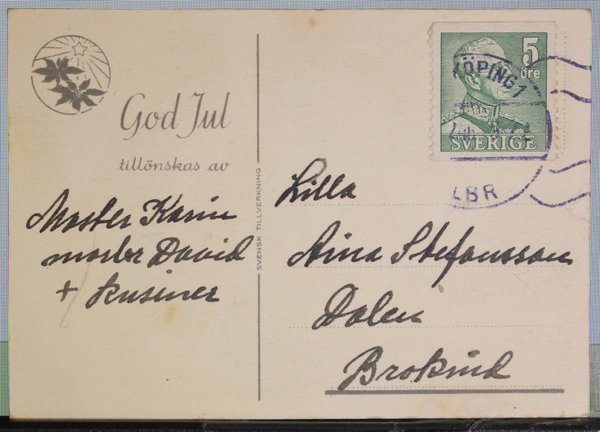 God Jul
tillönskas av
Moster Karin
mosbr David
+ kusiner
SVENSK TILLVERKNING
5
öre
KÖPING 1
SVERIGE
LBR
Lilla
Aina Stefansson
Dalen
Brokind